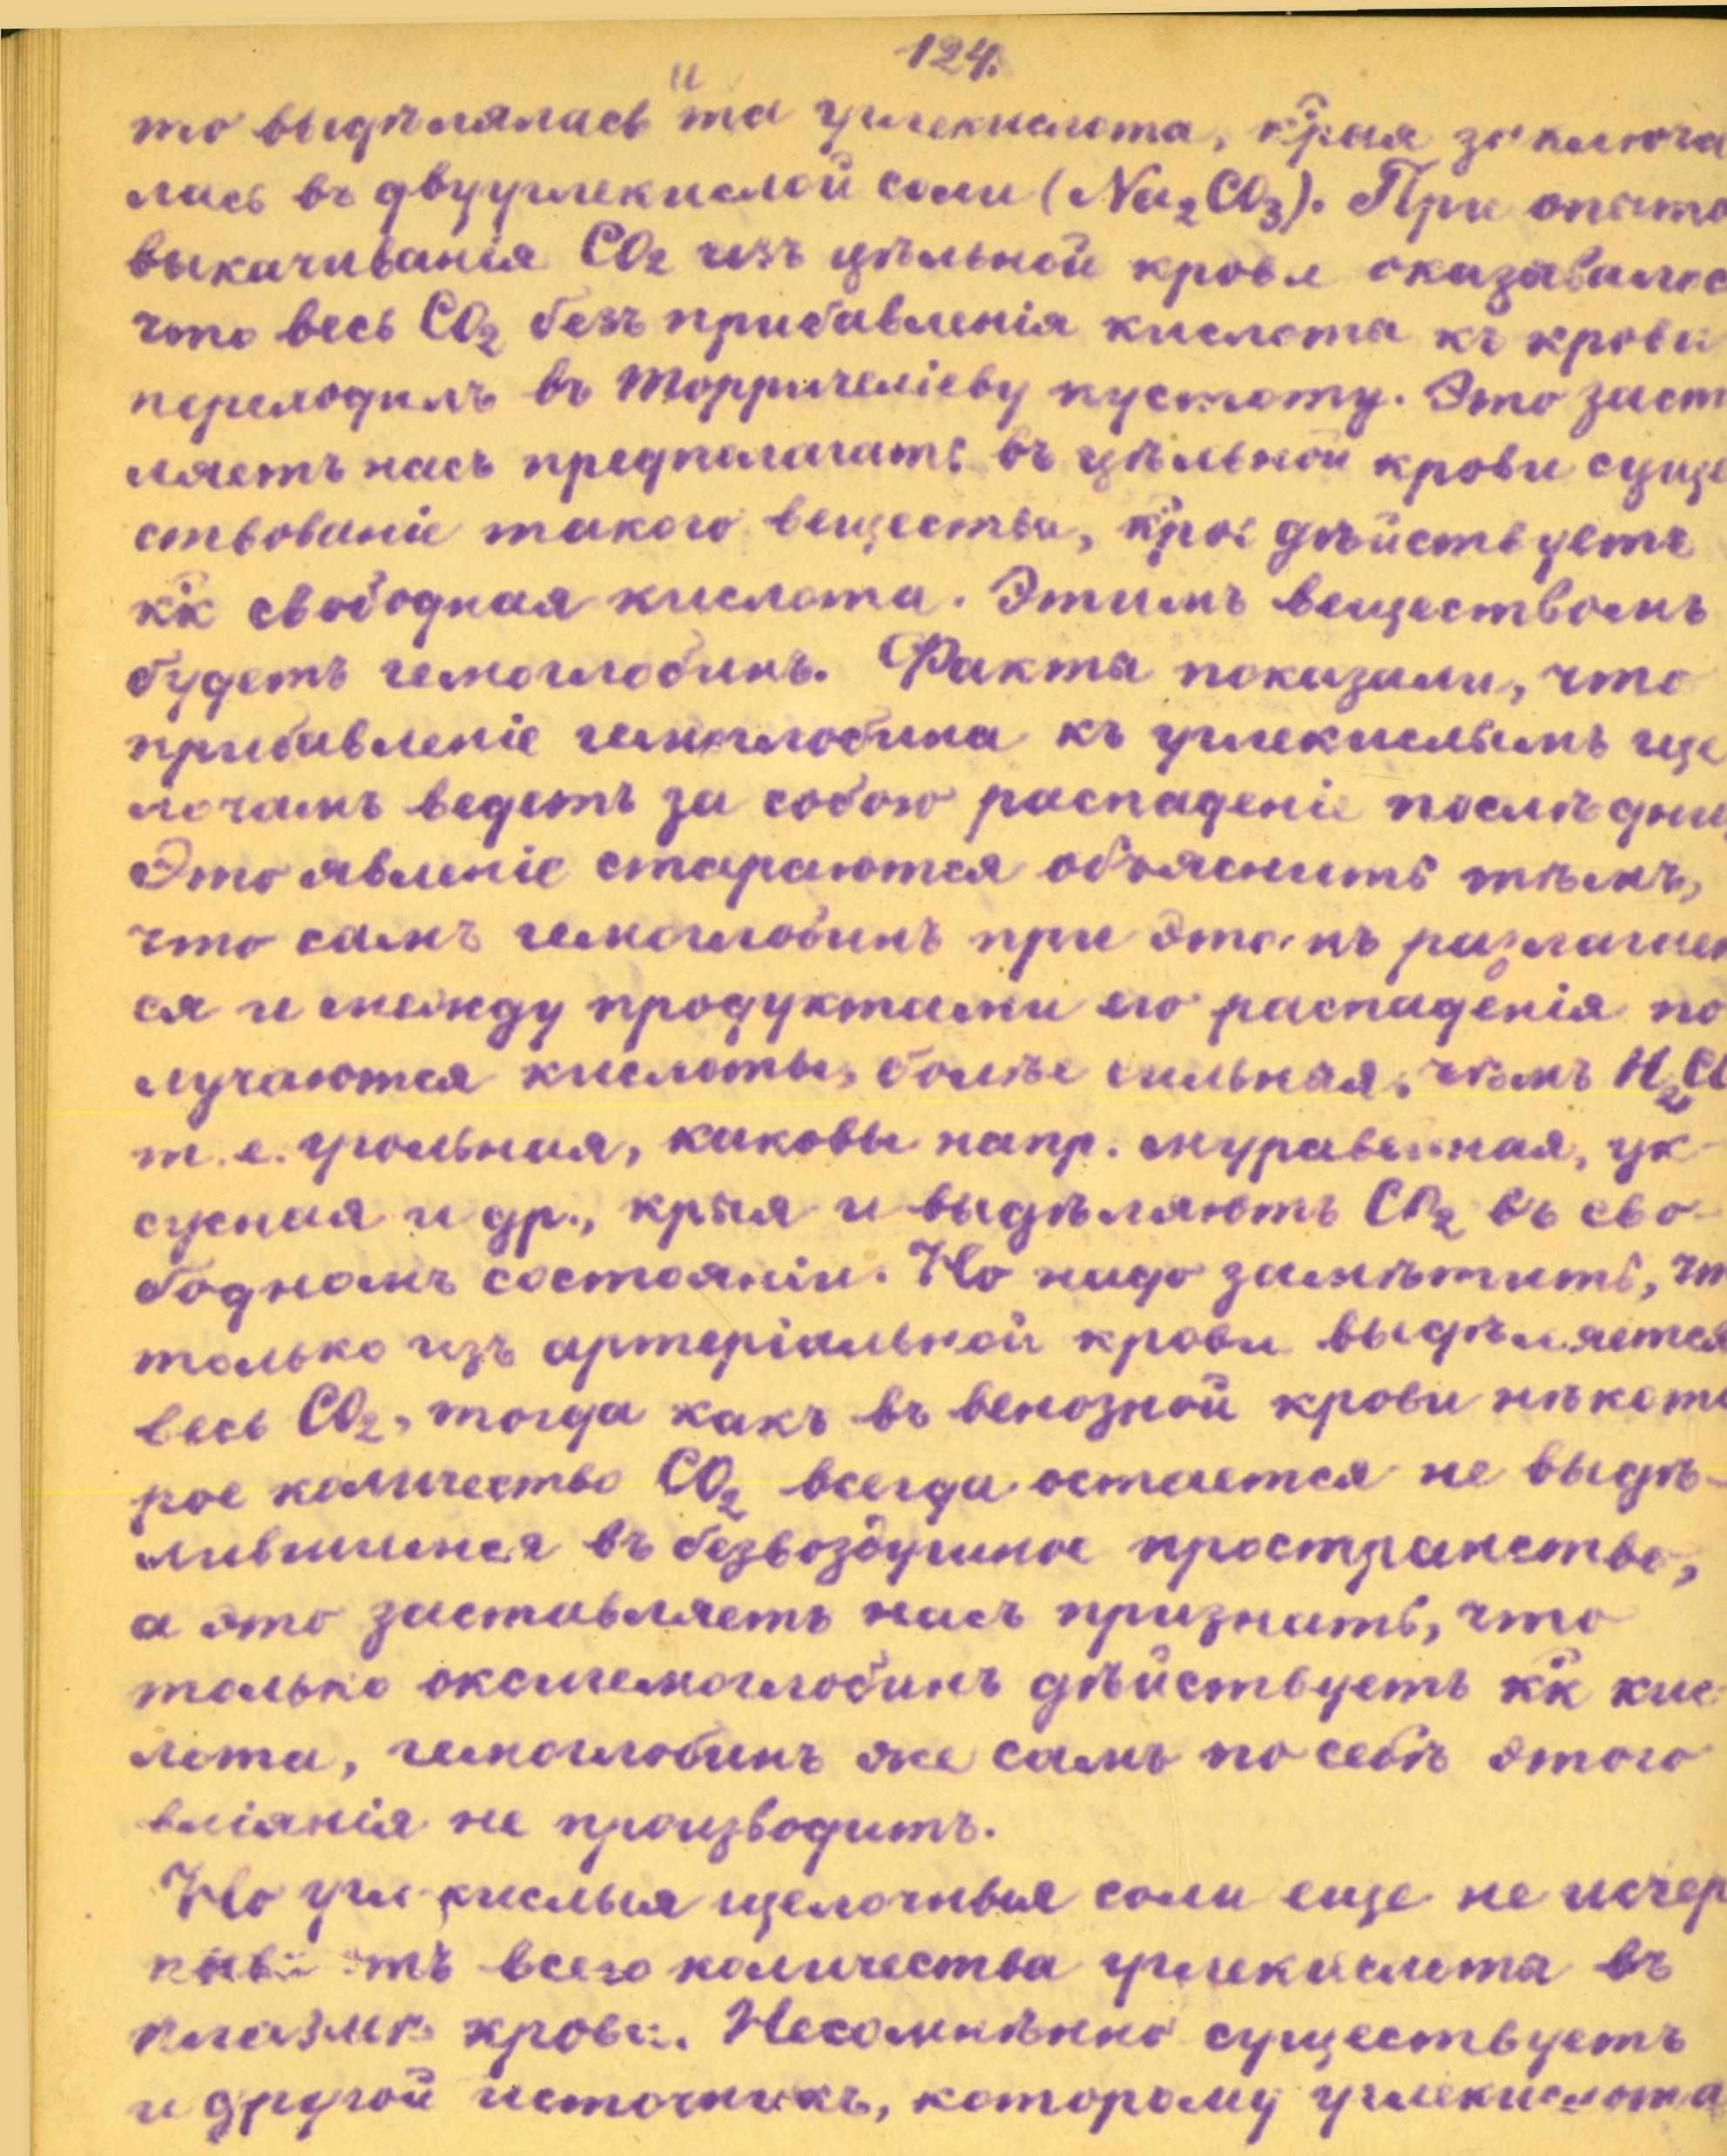 124.
то выдѣлялась и та углекислота, к̑рая заключа
лась въ двууглекислой соли (Na₂CO₃). При опыта
выкачиванія CO₂ изъ цѣльной крови оказывалос
что весь CO₂ безъ прибавленія кислоты къ крови
переходилъ въ Торричеліеву пустоту. Это заст
ляетъ насъ предполагать въ цѣльной крови суще
ствованіе такого вещества, к̑рое дѣйствуетъ
к̑к свободная кислота. Этимъ веществомъ
будетъ гемоглобинъ. Факты показали, что
прибавленіе гемоглобина къ углекислымъ ще
лочамъ ведетъ за собою распаденіе послѣдни
Это явленіе стараются объяснить тѣмъ,
что самъ гемоглобинъ при этомъ разлагает
ся и между продуктами его распаденія по
лучаются кислоты, болѣе сильныя, чѣмъ H₂CO
т. е. угольная, каковы напр. муравьиная, ук-
сусная и др., крыя и выдѣляютъ CO₂ въ сво-
бодномъ состояніи. Но надо замѣтить, чт
только изъ артеріальной крови выдѣляется
весь CO₂, тогда какъ въ венозной крови нѣкото
рое количество CO₂ всегда остается не выдѣ-
лившимся въ безвоздушное пространство,
а это заставляетъ насъ признать, что
только оксигемоглобинъ дѣйствуетъ к̑к кис-
лота, гемоглобинъ же самъ по себѣ этого
вліянія не производитъ.
Но углекислыя щелочныя соли еще не исчер
пываютъ всего количества углекислоты въ
плазмѣ крови. Несомнѣнно существуетъ
и другой источникъ, которому углекислота